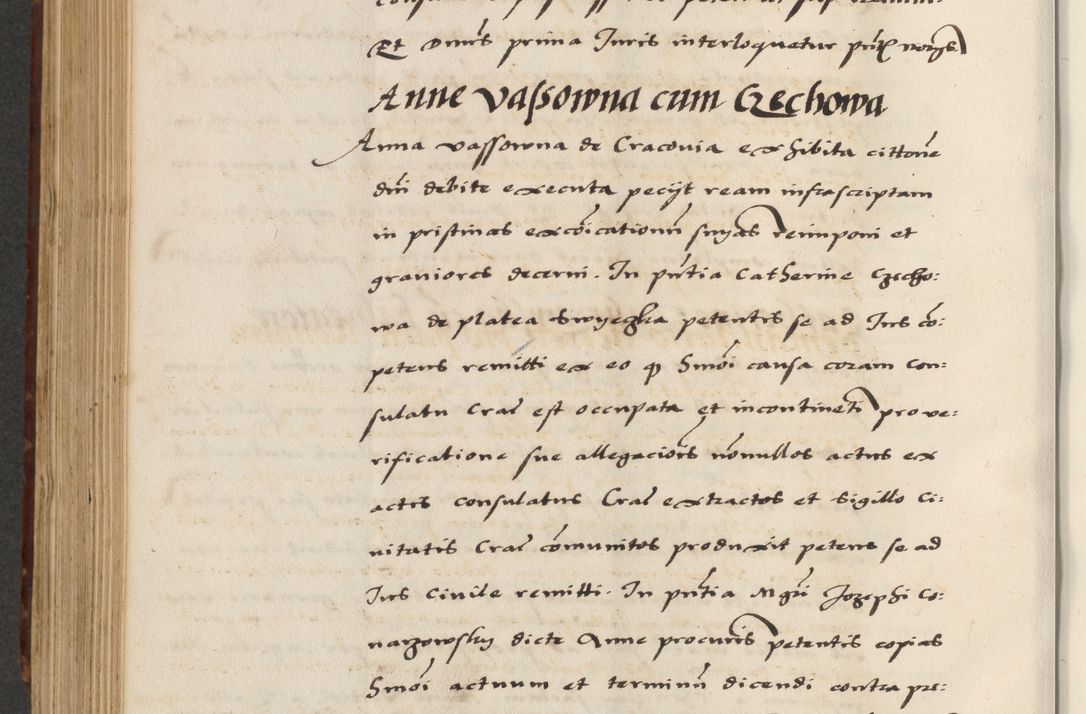 Et Dnus prima Juris interloquetur pntibus
Anne Vassowna cum Czechowa
Anna Vassowna de Cracovia exhibita cittone
dni debite executa peciit ream infrascriptam
in pristinas excoicationum suyas reimponi et
graviores decerni. In pntia Catherine Czecho:
wa de platea Swyeczka petentis se ad Jus co:
petens remitti ex eo qp Smoi causa coram Con:
sulatu Cra est occupata et incontineti pro ve:
rificatione sue allegaciois nonullos actus ex
actis consulatus Cra extractos et sigillo Ci:
vitatis Cra comunitos produxit petens se ad
Jus Civile remitti. In pntia Mgri Jozephi Co:
narzowsky dicte Anne procuris petentis copias
Smoi actuum et terminum dicendi contra pre: